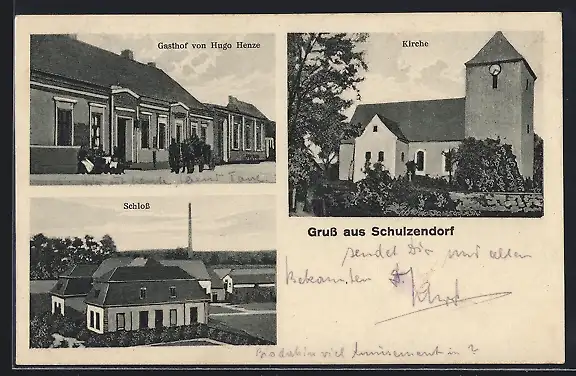 Gasthof von Hugo Henze
Kirche
Schloß
Gruß aus Schulzendorf
sendet Dir und allen
Bekannten
viel Amüsement in ?